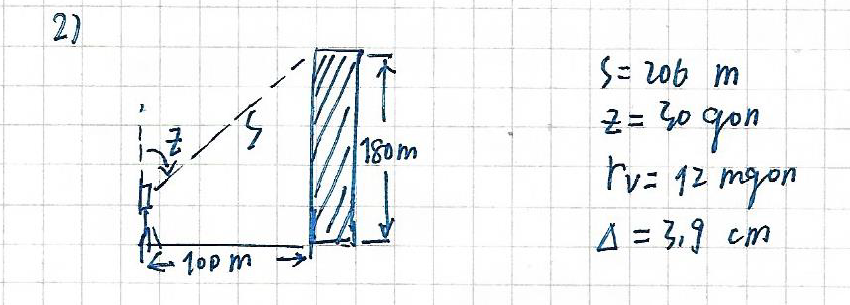 2)
z
S
180m
100 m
S = 206 m
z = 30 gon
rv = 12 mgon
Δ = 3,9 cm